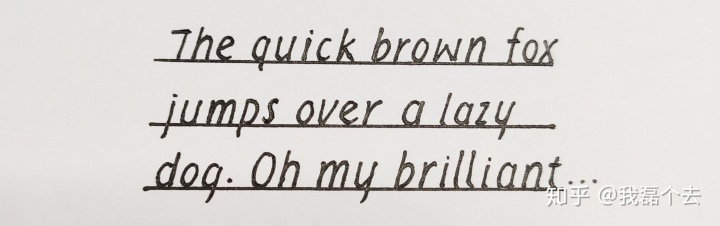 The quick brown fox
jumps over a lazy
dog. Oh my brilliant...
知乎 @我磊个去